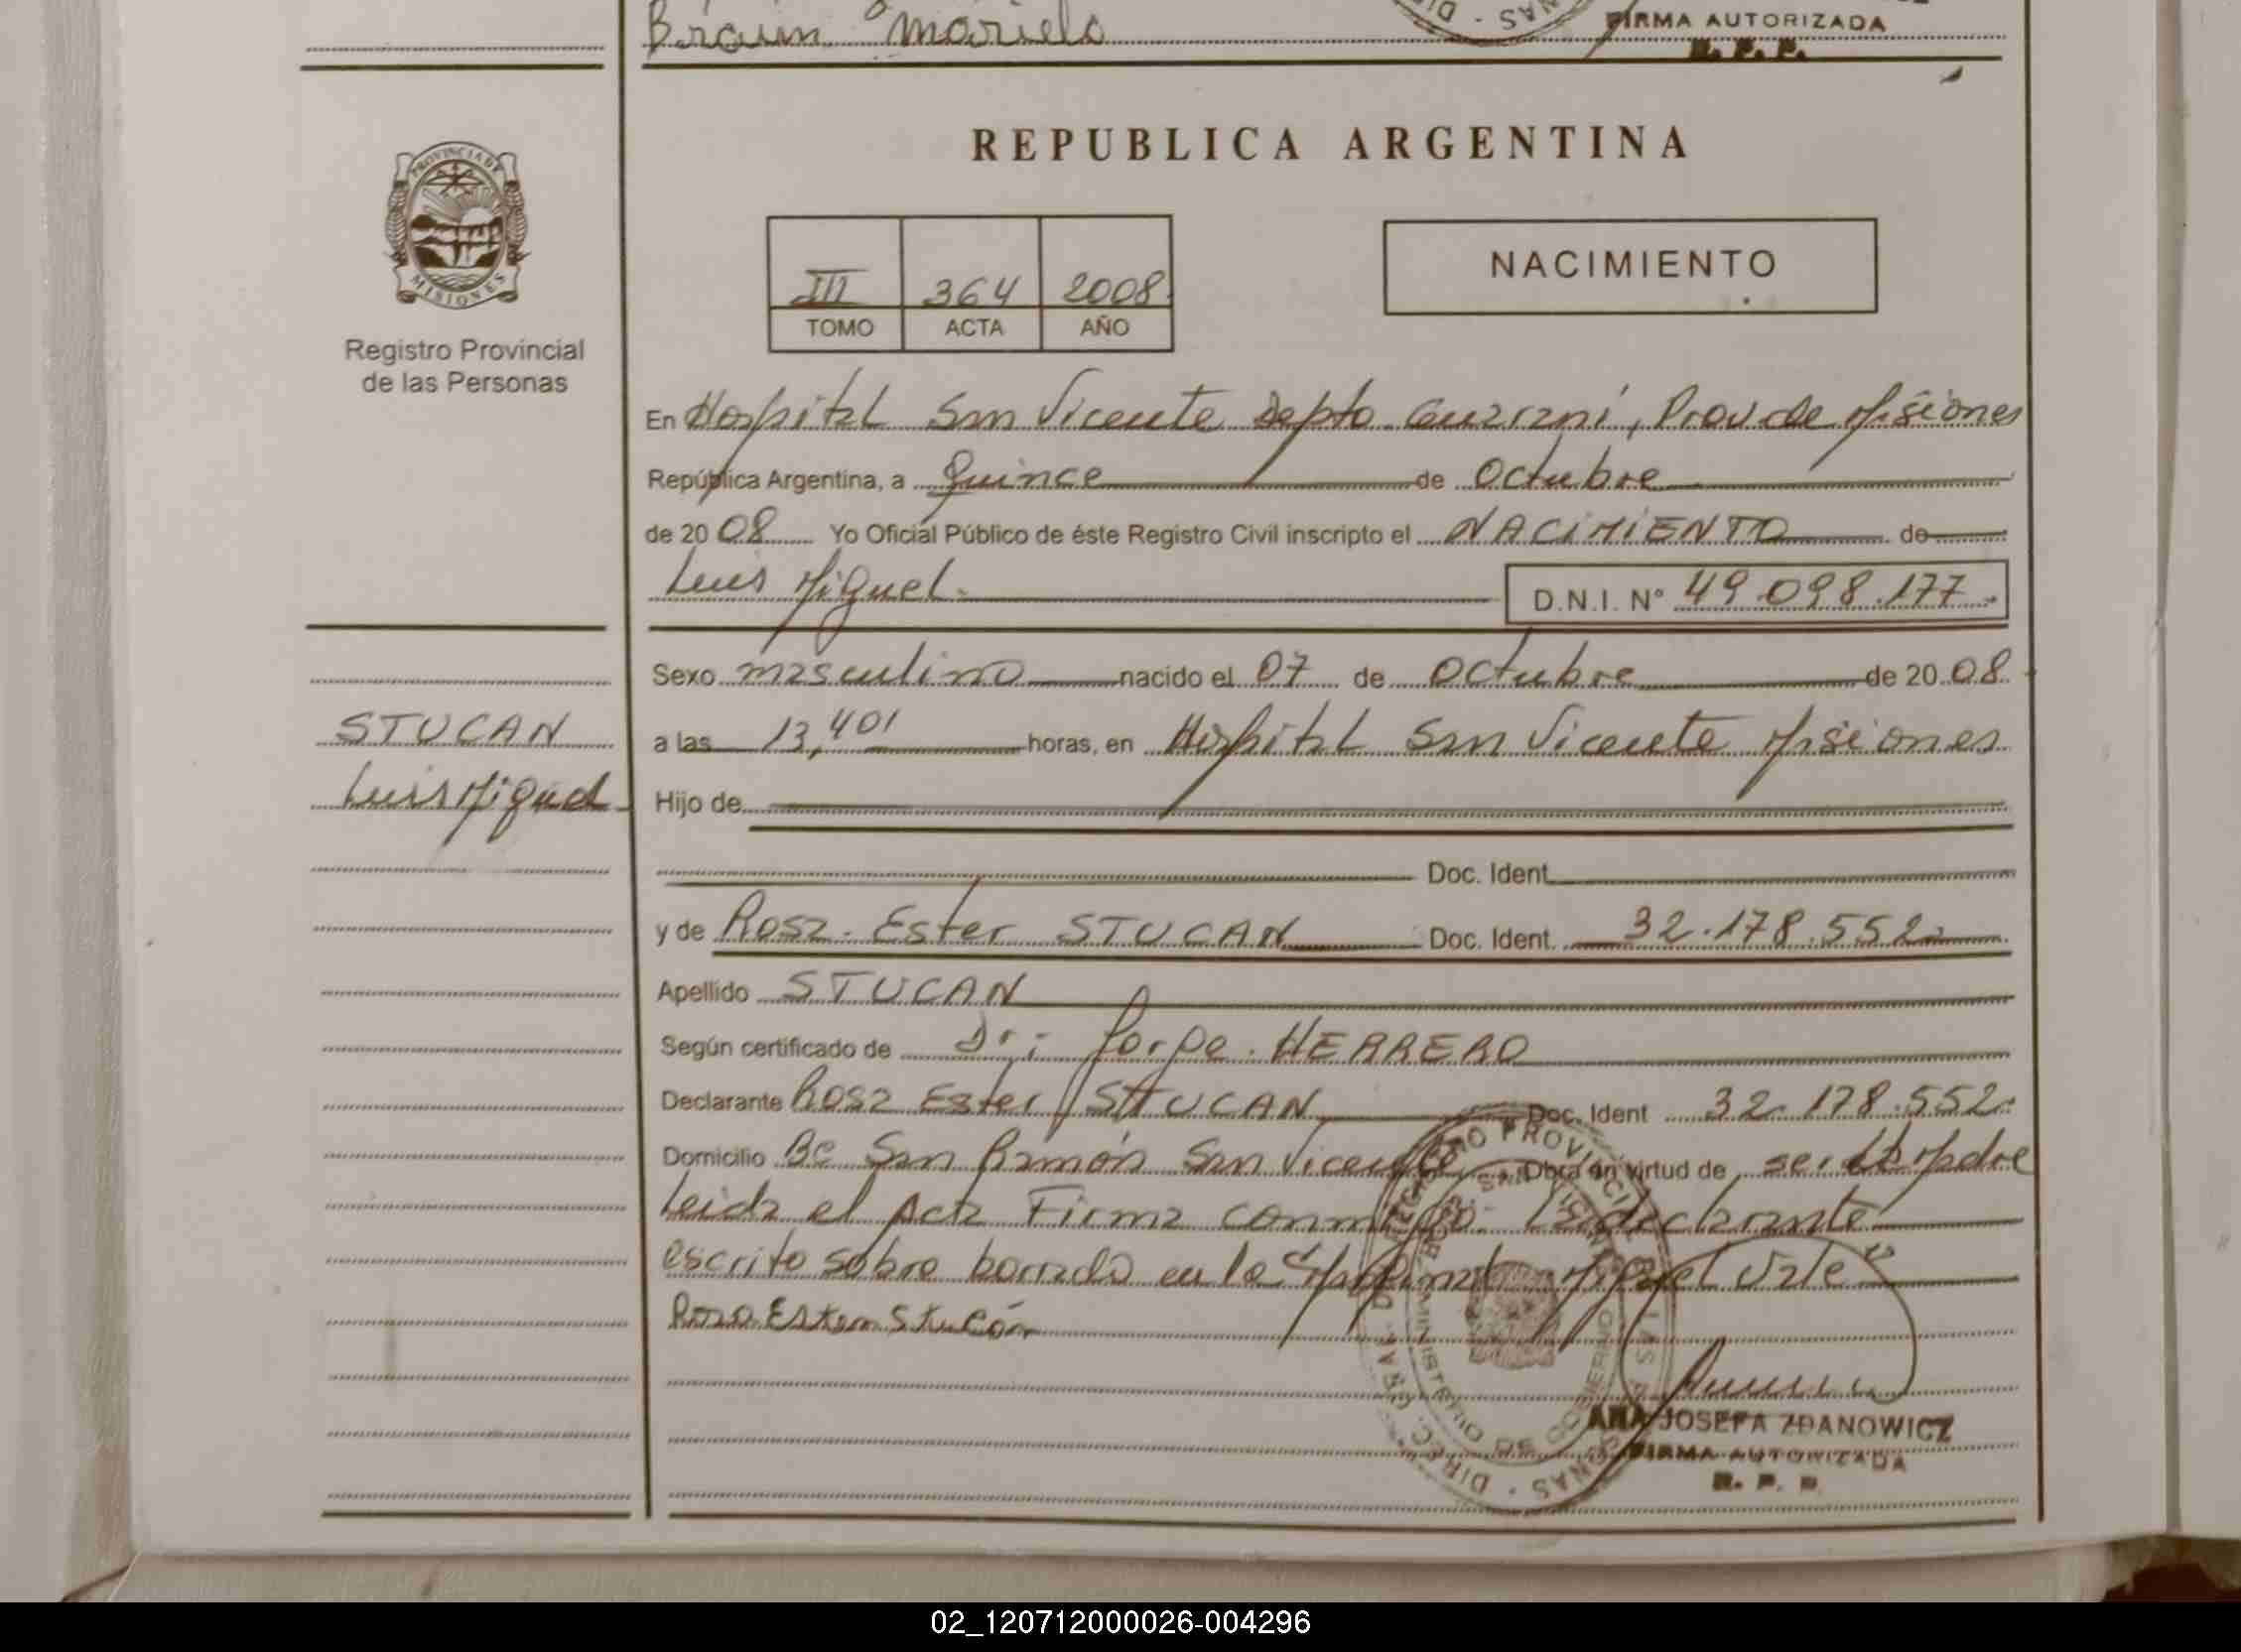 Braun Mariela
DIR NAS
FIRMA AUTORIZADA
R. P. P.
PROVINCIA DE
MISIONES
Registro Provincial
de las Personas
REPUBLICA ARGENTINA
III 364 2008
TOMO ACTA AÑO
NACIMIENTO
En Hospital San Vicente Depto. Guarani, Prov de Misiones
República Argentina, a Quince de Octubre
de 2008 Yo Oficial Público de éste Registro Civil inscripto el NACIMIENTO de
Luis Miguel. D.N.I. N° 49.098.177.
Sexo masculino nacido el 07 de Octubre de 2008
STUCAN
Luis Miguel
a las 13,40 horas, en Hospital San Vicente Misiones
Hijo de
Doc. Ident.
y de Rosa Ester STUCAN Doc. Ident. 32.178.552
Apellido STUCAN
Según certificado de Dr: Jorge HERRERO
Declarante Rosa Ester STUCAN Doc. Ident 32.178.552
Domicilio Bº San Ramón San Vicente Obra en virtud de ser la Madre
Leida el Acta Firma conmigo la declarante
escrito sobre borrado en lo Miguel Vale
Rosa Ester Stucán
ANA JOSEFA ZDANOWICZ
FIRMA AUTORIZADA
R. P. P.
MINISTERIO DE GOBIERNO
02_120712000026-004296